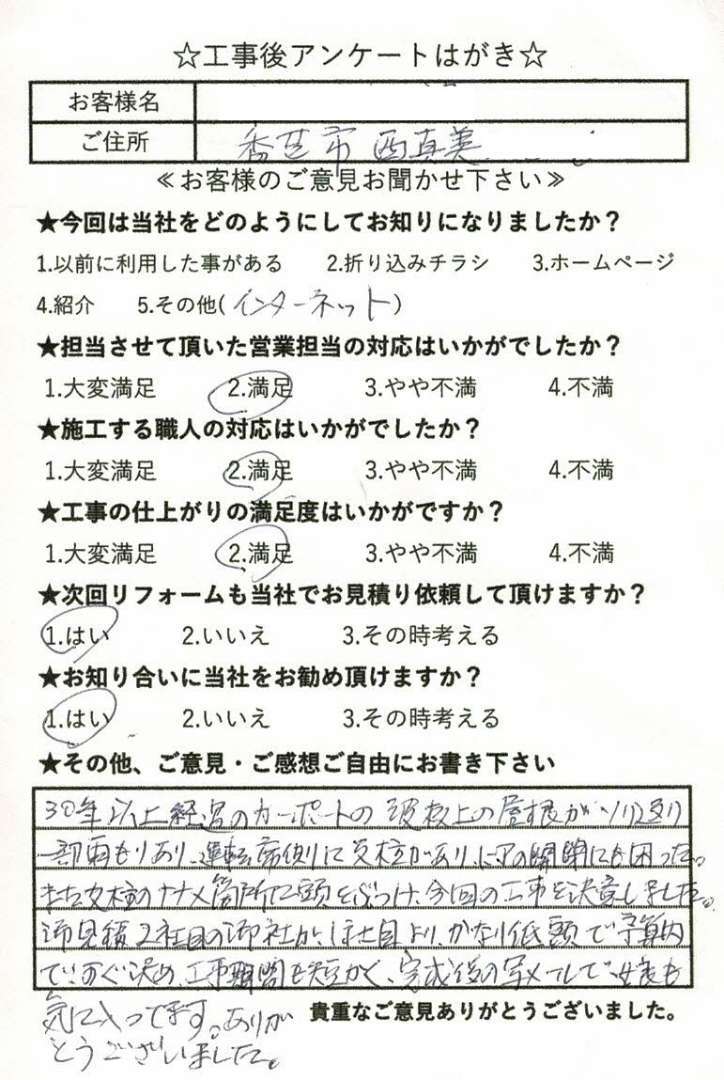 ☆工事後アンケートはがき☆
お客様名
ご住所 香芝市 西真美
≪お客様のご意見お聞かせ下さい≫
★今回は当社をどのようにしてお知りになりましたか？
1.以前に利用した事がある 2.折り込みチラシ 3.ホームページ
4.紹介 5.その他(インターネット)
★担当させて頂いた営業担当の対応はいかがでしたか？
1.大変満足 2.満足 3.やや不満 4.不満
★施工する職人の対応はいかがでしたか？
1.大変満足 2.満足 3.やや不満 4.不満
★工事の仕上がりの満足度はいかがですか？
1.大変満足 2.満足 3.やや不満 4.不満
★次回リフォームも当社でお見積り依頼して頂けますか？
1.はい 2.いいえ 3.その時考える
★お知り合いに当社をお勧め頂けますか？
1.はい 2.いいえ 3.その時考える
★その他、ご意見・ご感想ご自由にお書き下さい
30年以上経過のカーポートの波板上の屋根がソリ返り
一部雨もりあり、運転席側に支柱があり、ドアの開閉にも困った。
また支柱のナナメ箇所に頭をぶつけ、今回の工事を決意しました。
御見積2社目の御社が、1社目より、かなり低額で予算内
ですぐ決め、工事期間も短かく、完成後の写メールで も
気に入ってます。ありが
とうございました。
貴重なご意見ありがとうございました。